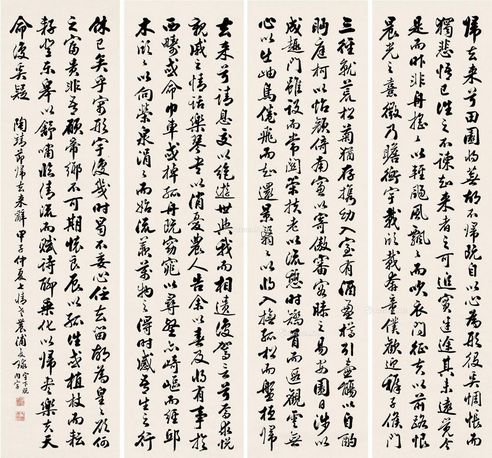 歸去來兮田園將蕪胡不歸既自以心役奚惆悵而
獨悲悟已往之不諫知來者之可追實迷途其未遠覺今
是而昨非舟搖搖以輕颺風飄飄而吹衣問征夫以前路恨
晨光之熹微乃瞻衡宇載欣載奔童僕歡迎稚子候門
三徑就荒松菊猶存攜幼入室有酒盈樽引壺觴以自酌
眄庭柯以怡顏倚南窗以寄傲審容膝之易安園日涉以
成趣門雖設而常關策扶老以流憩時矯首而遐觀雲無
心以出岫鳥倦飛而知還景翳翳以將入撫孤松而盤桓歸
去來兮請息交以絕遊世與我而相遺復駕言兮焉求悅
親戚之情話樂琴書以消憂農人告余以春及將有事於
西疇或命巾車或棹孤舟既窈窕以尋壑亦崎嶇而經邱
木欣欣以向榮泉涓涓而始流羨萬物之得時感吾生之行
休已矣乎寓形宇復幾時曷不委心任去留胡為皇皇欲何
之富貴非吾願帝鄉不可期懷良辰以孤往或植杖而耘
耔登東皋以舒嘯臨清流而賦詩聊乘化以歸盡樂夫天
命復奚疑 陶靖節歸去來辭 甲子仲夏上浣 宇下脫內字